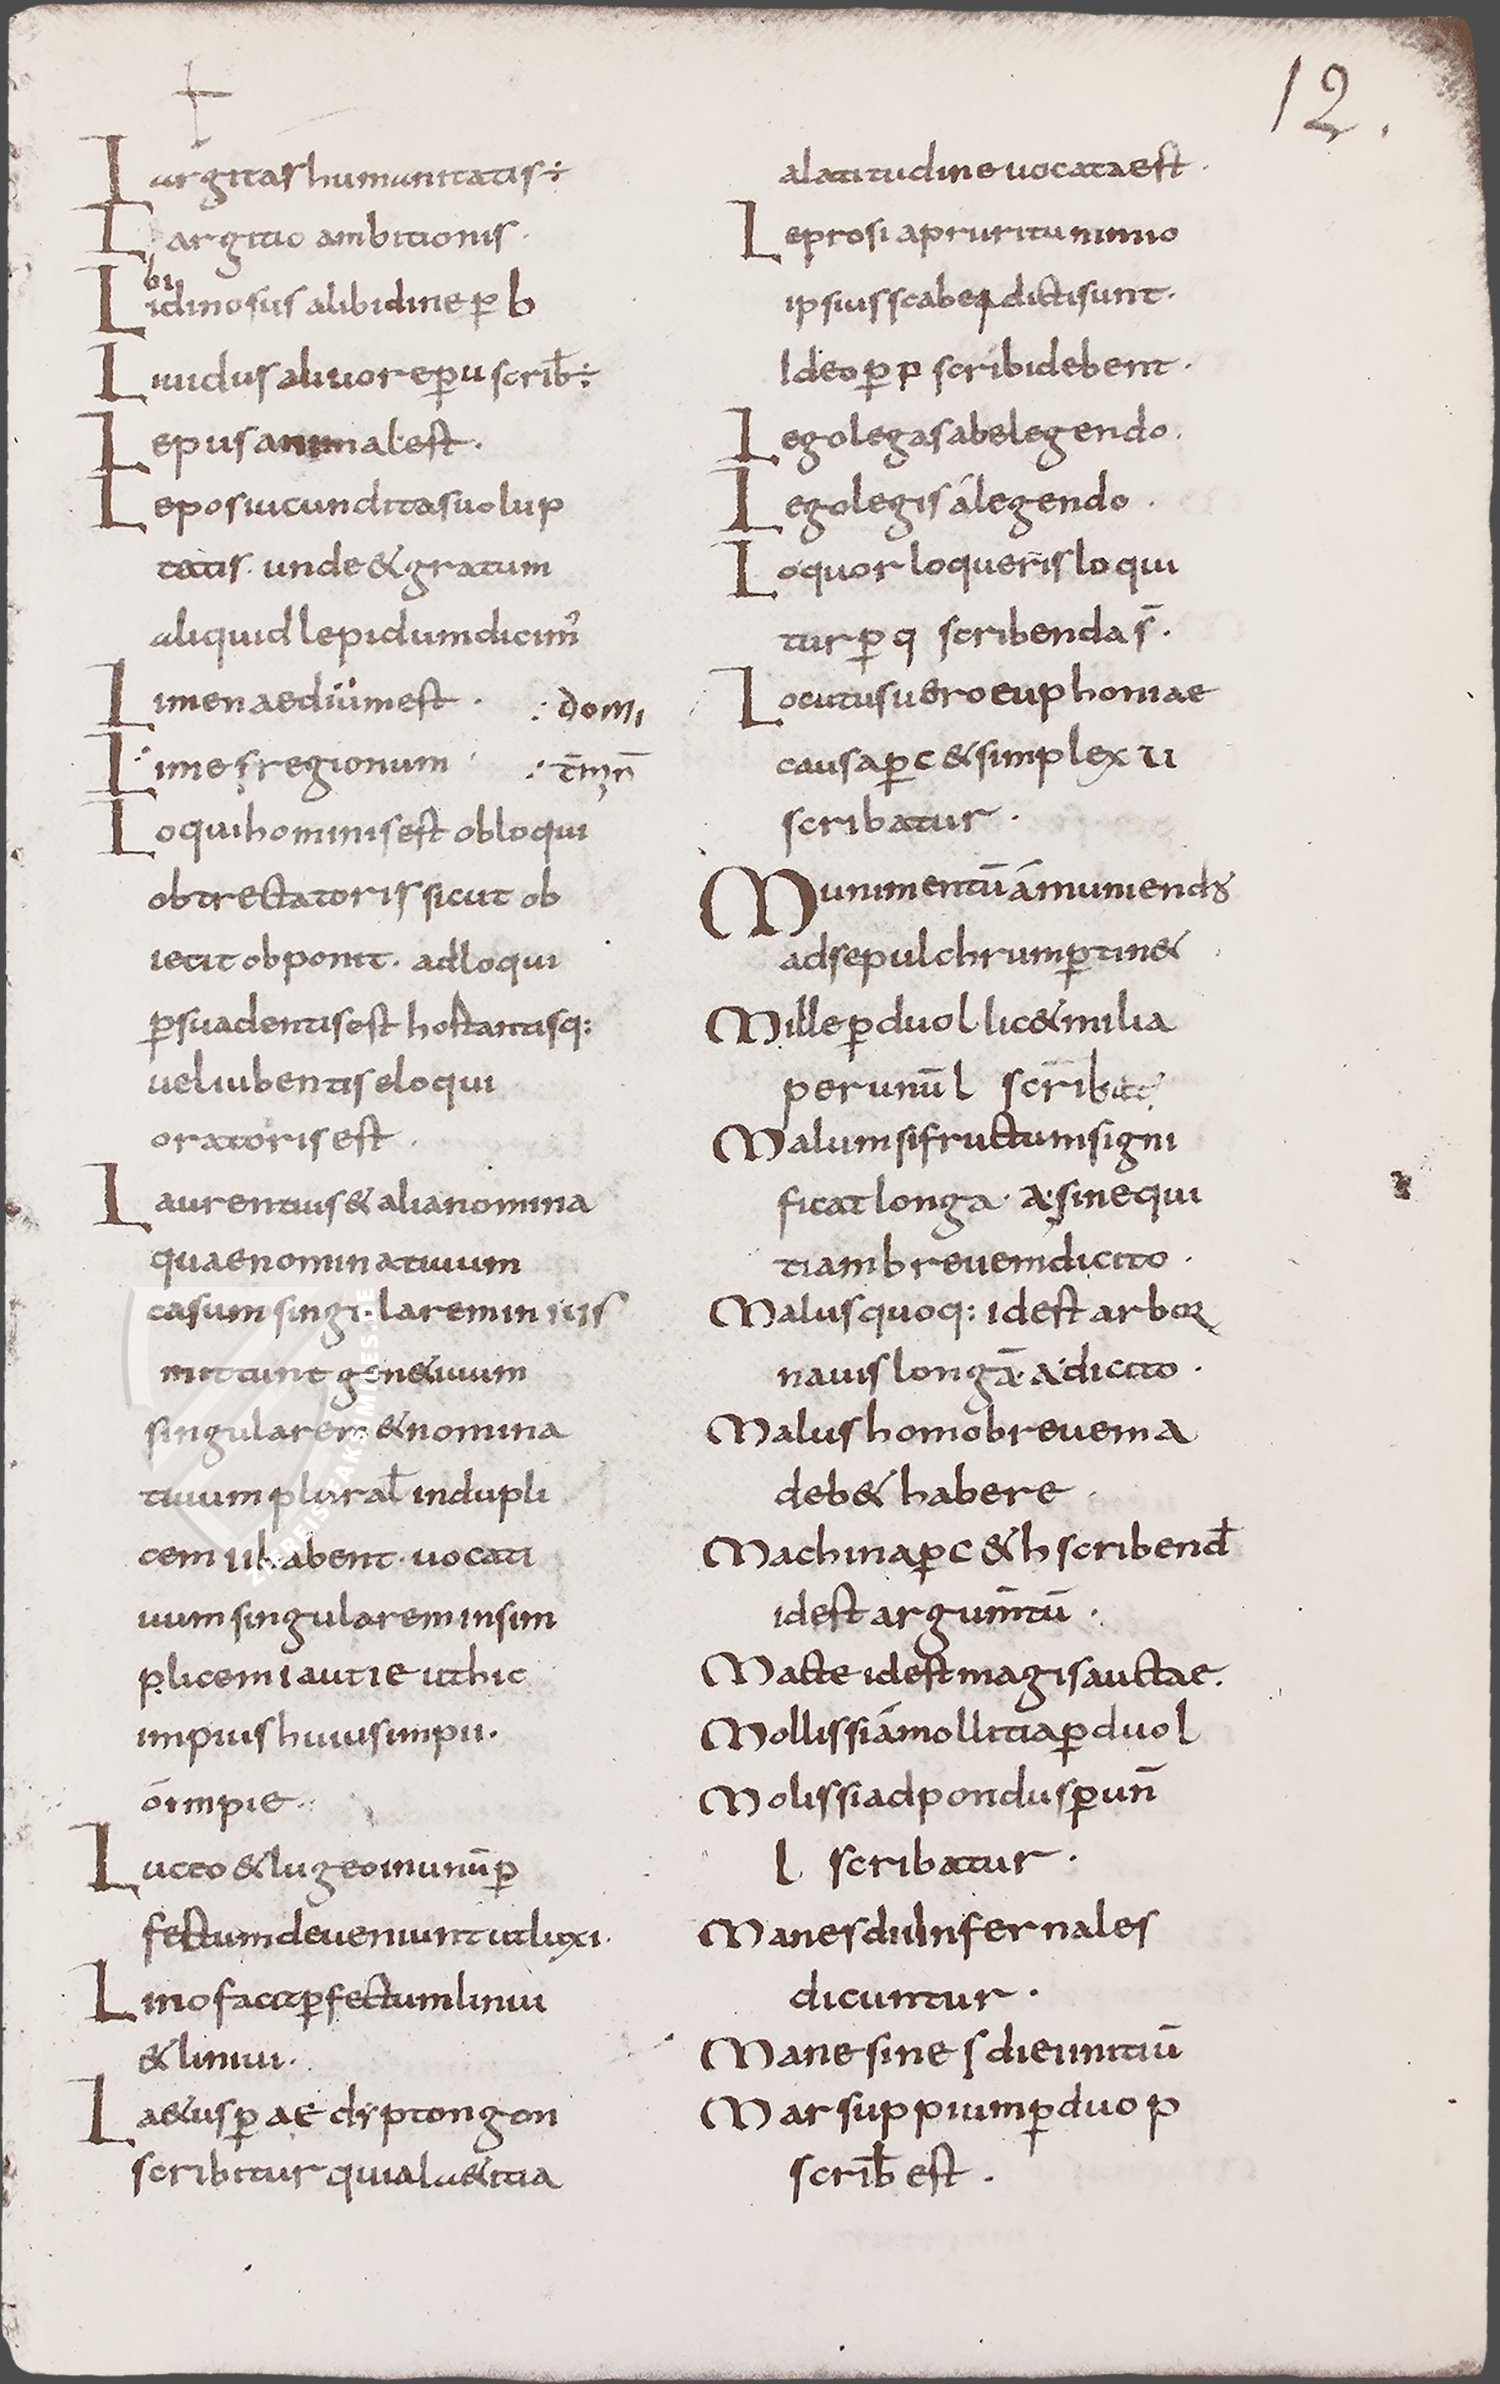 12.
Largitas humanitatis ÷
Largitio ambitionis.
bi
Lidinosus a libidine p̱ b
Liuidus a liuore p̱ u scrib̄ ÷
Lepus animal est.
Lepos iucunditas uolup
tatis. unde & gratum
aliquid lepidum dicim᾽
Limen aedium est. ∴ domi
Limes regionum ∴ t̄mn̄
Loqui hominis est obloqui
obtrectatoris sicut ob
icit obponit. adloqui
p̱suadentis est hortantisq:
uel iubentis eloqui
oratoris est.
Laurentius & alia nomina
quae nominatiuum
casum singularem in ius
mittunt gen&iuum
singularem & nomina
tiuum plural̄ in dupli
cem ii habent. uocati
uum singularem in sim
plicem i aut ie ut hic
impius huius impii.
ó impie.
Luceo & lugeo in unū p̱
fectum deueniunt ut luxi.
Lino facit p̱fectum liniui
& liniui.
La&us p̱ ae dyptongon
scribitur quia la&itia
a latitudine uocata est.
Leprosi a pruritu nimio
ipsius scabeę dicti sunt.
Ideo p̱ p scribi debent.
Lego legas abelegendo.
Lego legis á legendo.
Loquor loqueris loqui
tur p̱ q scribenda s̄.
Locutus uero euphoniae
causa p̱ c & simplex u
scribatur.
Munimentū á muniendo
ad sepulchrum p̱tin&
Mille p̱ duo l. lic& milia
per unū l scribat᾽
Malum si fructum signi
ficat longa. a. sin equi
tiam breuem dicito.
Malus quoq: id est arbor
nauis longā. a. dicito.
Malus homo breuem a
deb& habere.
Machina p̱ c & h scribend̄
id est argum̄tū.
Macte id est magis auctae.
Mollissi á mollitia p̱ duo l
Molissi ad pondus p̱ un̄
l scribatur.
Manes dii Infernales
dicuntur.
Mane sine s diei initiū
Marsuppium p̱ duo p
scrib̄ est.
ZFB FAKSIMILES.DE